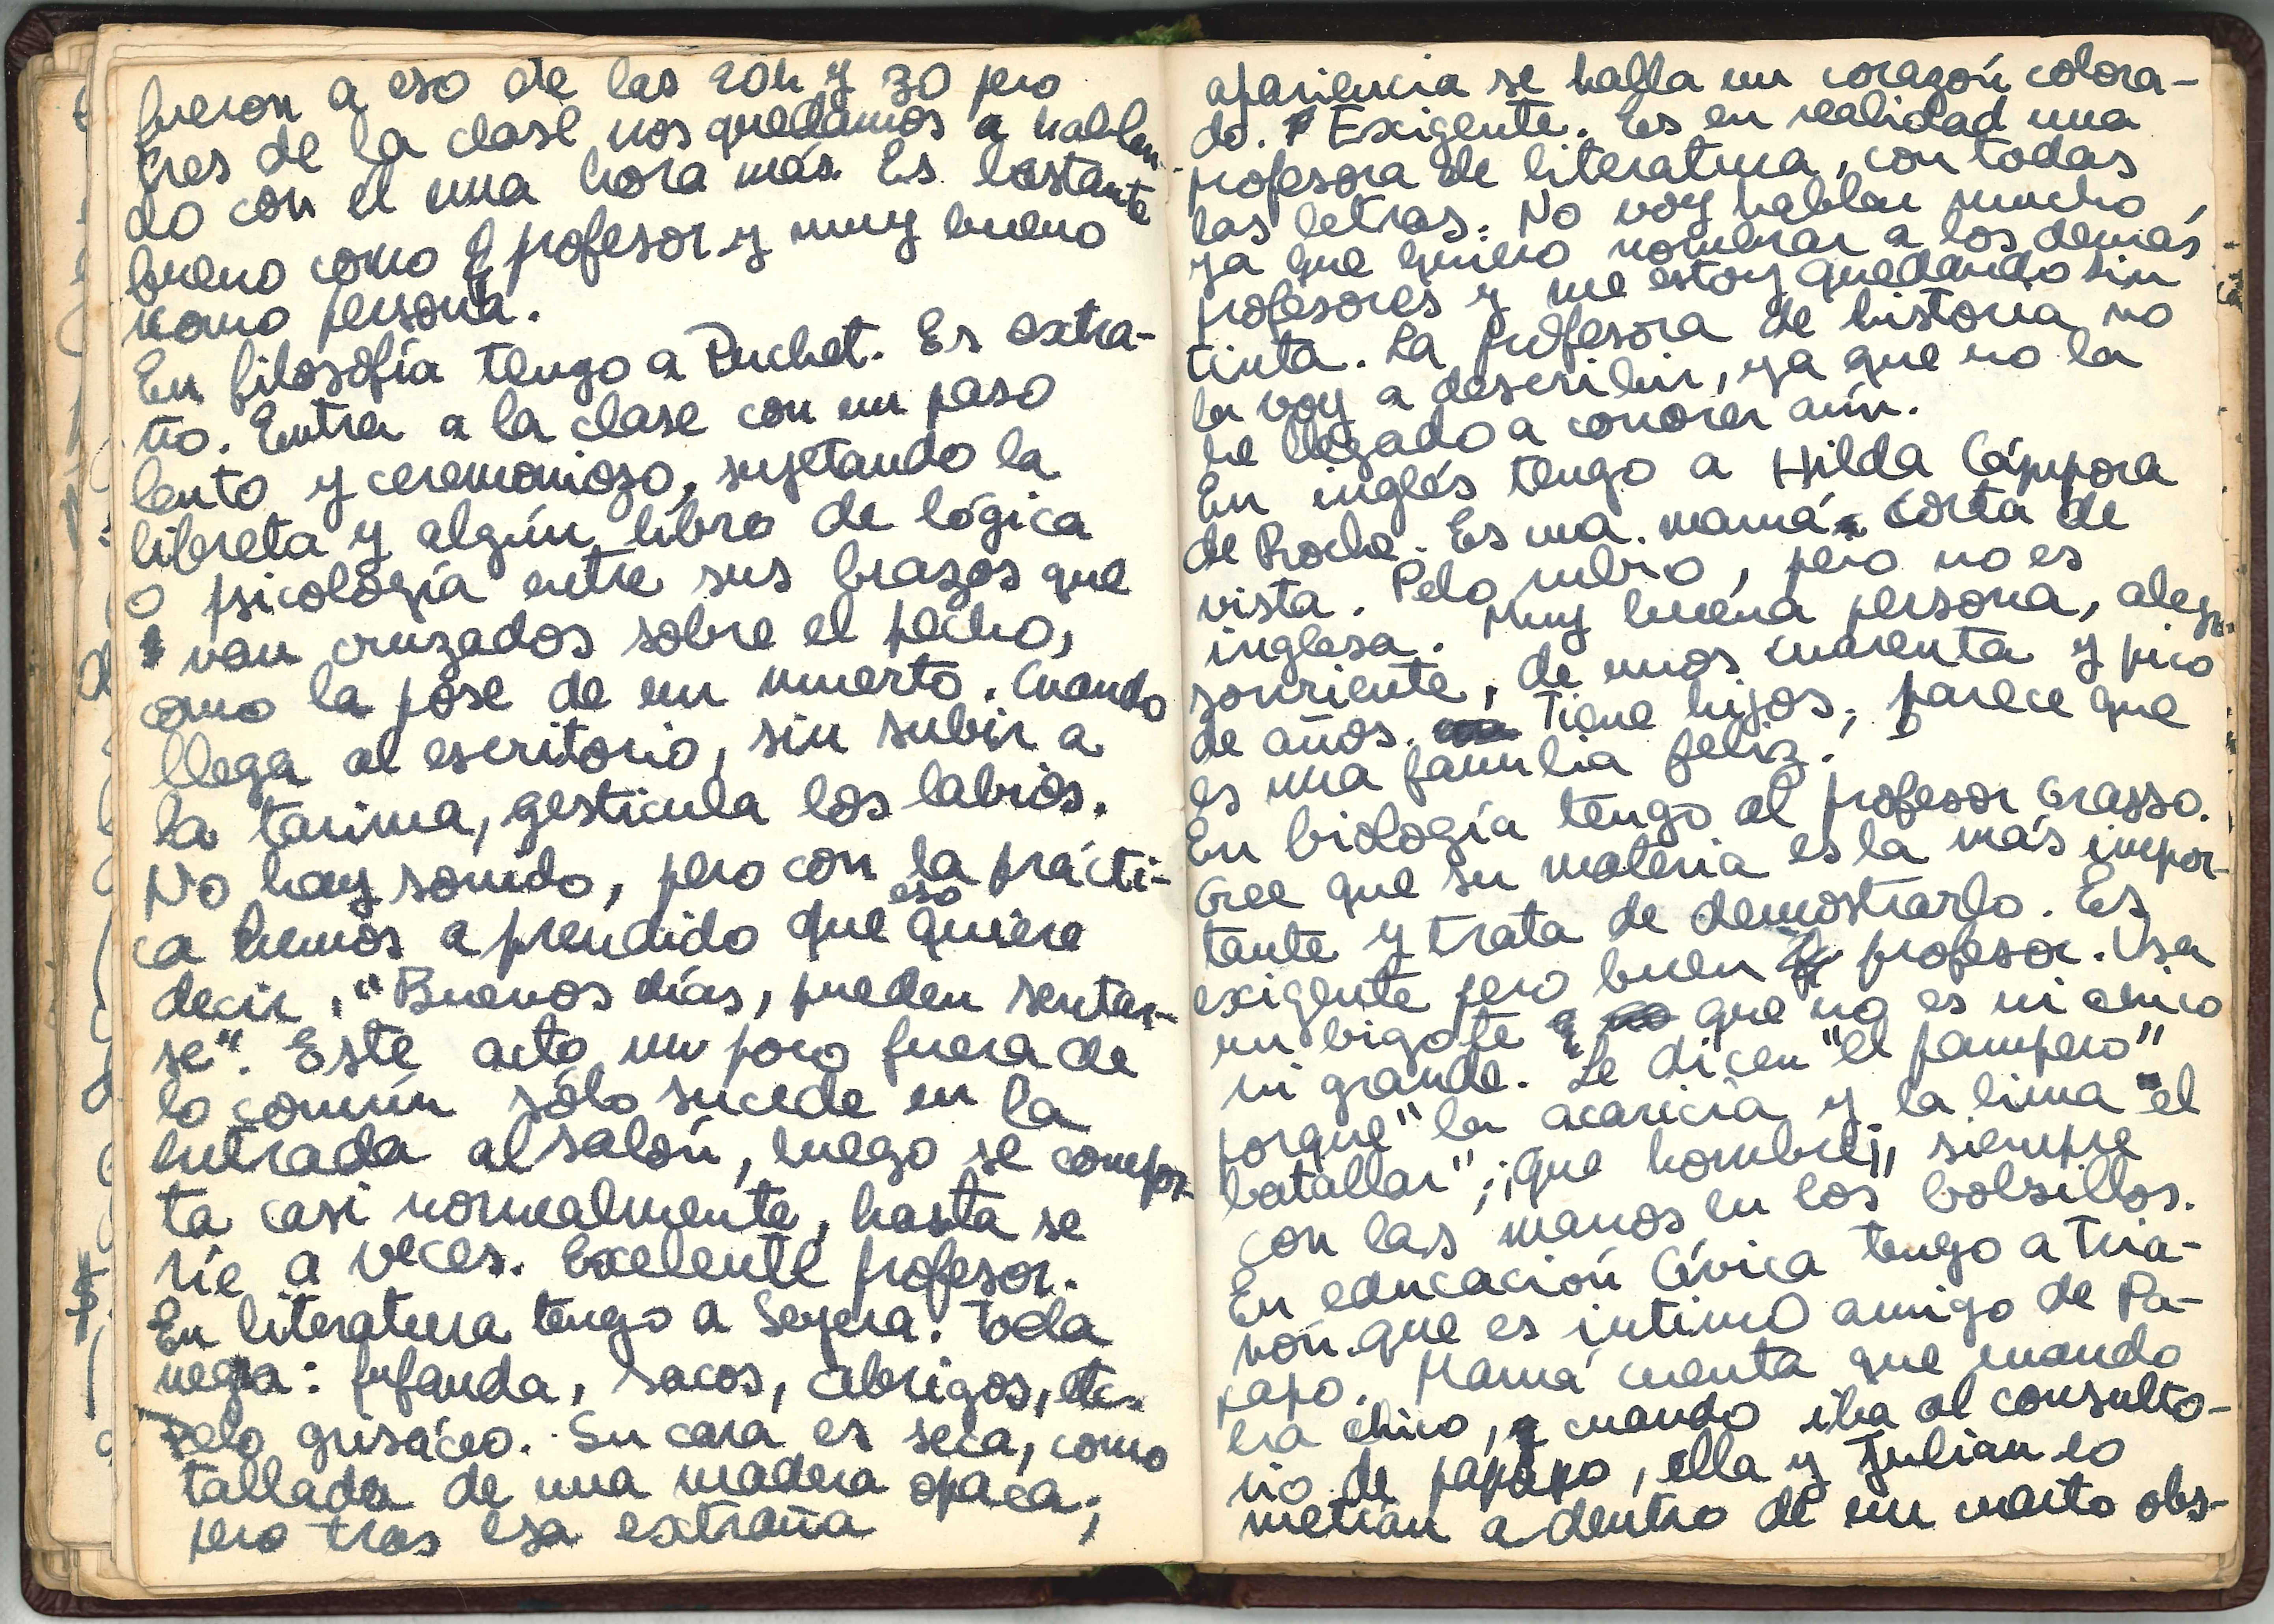 fueron a eso de las 20h y 30 pero
tres de la clase nos quedamos a hablan-
do con el una hora más. Es bastante
bueno como profesor y muy bueno
como persona.
En filosofía tengo a Puchet. Es extra-
ño. Entra a la clase con un paso
lento y ceremonioso, sujetando la
libreta y algún libro de lógica
o psicología entre sus brazos que
van cruzados sobre el pecho,
como la pose de un muerto. Cuando
llega al escritorio, sin subir a
la tarima, gesticula los labios.
No hay sonido, pero con la prácti-
ca hemos aprendido que eso quiere
decir, "Buenos días, pueden sentar-
se". Este acto un poco fuera de
lo común sólo sucede en la
entrada al salón, luego se compor-
ta casi normalmente, hasta se
ríe a veces. Exelente profesor.
En literatura tengo a Seyera. Toda
negra: bufanda, sacos, abrigos, etc.
Pelo grisáceo. Su cara es seca, como
tallada de una madera opaca;
pero tras esa extraña
apariencia se halla un corazón colora-
do. Exigente. Es en realidad una
profesora de literatura, con todas
las letras. No voy hablar mucho,
ya que quiero nombrar a los demás
profesores y me estoy quedando sin
tinta. La profesora de historia no
la voy a describir, ya que no la
he llegado a conocer aún.
En inglés tengo a Hilda Cáppora
de Roche. Es una mamá corta de
vista. Pelo rubio, pero no es
inglesa. Muy buena persona, alegre
sonriente, de unos cuarenta y pico
de años. Tiene hijos; parece que
es una familia feliz.
En biología tengo al profesor Grasso.
Cree que su materia es la más impor-
tante y trata de demostrarlo. Es
exigente pero buen profesor. Usa
un bigote que no es ni chico
ni grande. Le dicen "el pampero"
porque "la acaricia y la lima el
batallar"; ¡que hombre¡, siempre
con las manos en los bolsillos.
En educación Cívica tengo a Tira-
nón que es intimo amigo de Pa-
papo. Mamá cuenta que cuando
era chico, cuando iba al consulto-
rio de papapo, ella y Julian lo
metían a dentro de un cuarto obs-